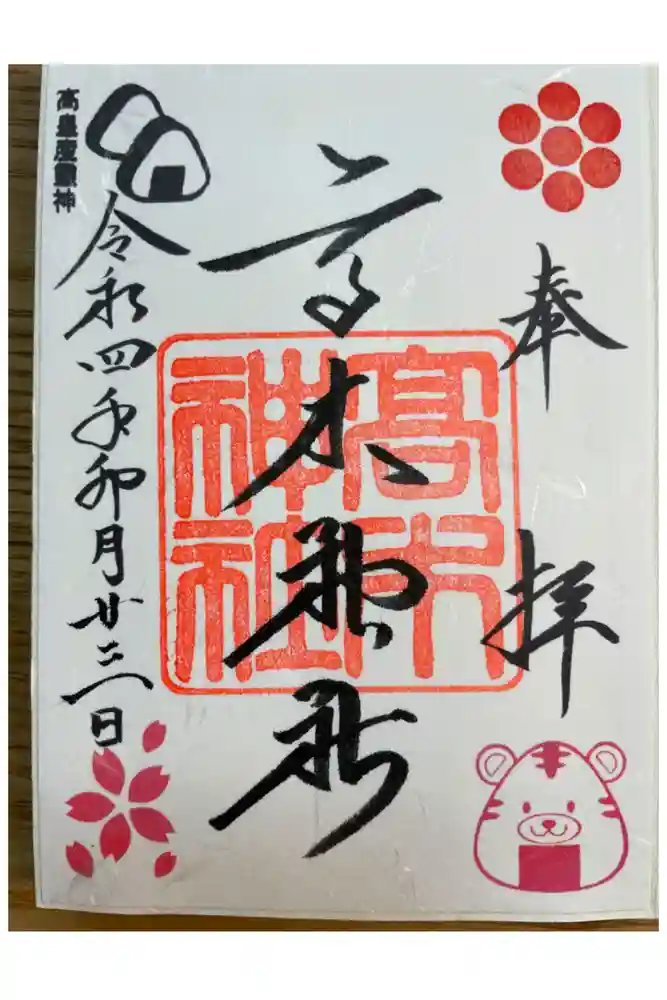 奉拝
高木神社
高木
神社
令和四年卯月廿三日
高皇産靈神